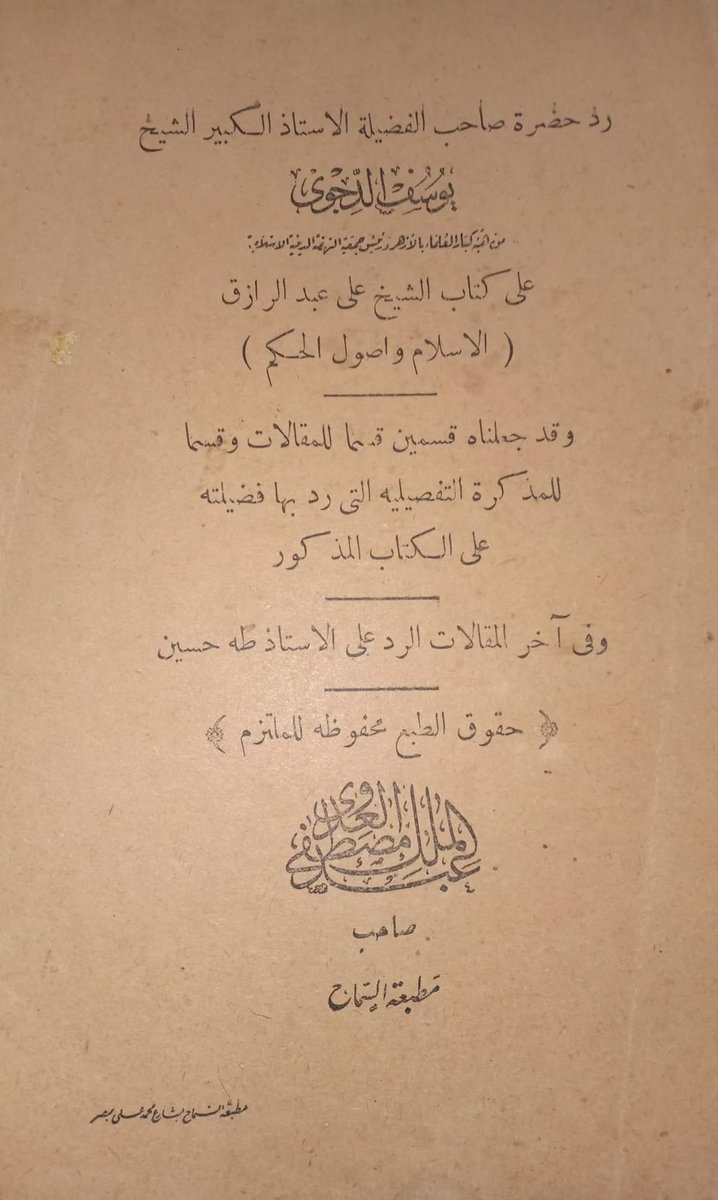 رد حضرة صاحب الفضيلة الاستاذ الكبير الشيخ
يوسف الدجوى
من هيئة كبار العلماء بالأزهر ورئيس جمعية النهضة الدينية الاسلامية
على كتاب الشيخ على عبد الرازق
( الاسلام واصول الحكم )
وقد جعلناه قسمين قسما للمقالات وقسما
للمذكرة التفصيليه التى رد بها فضيلته
على الكتاب المذكور
وفى آخر المقالات الرد على الاستاذ طه حسين
﴿ حقوق الطبع محفوظه للملتزم ﴾
عبد الملك مصطفى العدوى
صاحب
مطبعة السماح
مطبعة السماح بشارع محمد على بمصر